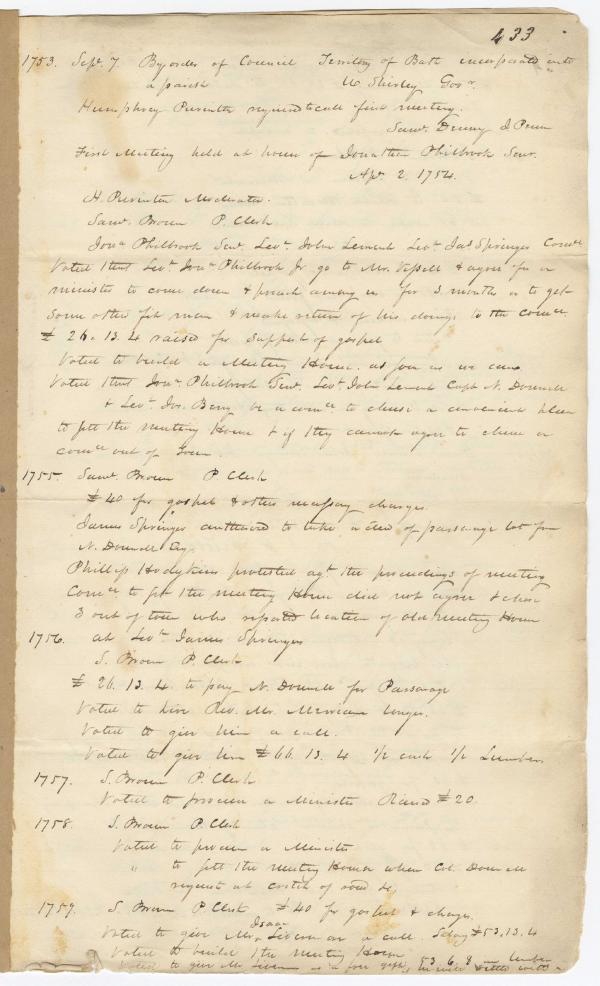 433
1753. Sept. 7. By order of Council Territory of Bath incorporated into
a parish W Shirley Govr.
Humphrey Purinton required to call first meeting.
Saml. Denny J Peace
First Meeting held at house of Jonathan Philbrook Senr.
Apr. 2. 1754.
H. Purinton Moderator.
Saml. Brown P. Clerk
Jona Philbrook Senr. Levt. John Lemont Levt. Jas Springer Comtee
Voted that Levt. Jona. Philbrook Jr go to Mr. & agree for a
minister to come down & preach among us for 3 months or to get
some other fit man & make return of his doings to the comee.
£ 26. 13. 4 raised for support of gospel
Voted to build a Meeting House as soon as we can
Voted that Jona. Philbrook Senr. Levt. John Lemont Capt N. Donnell
& Levt. Jos. Berry be a comee to choose a convenient place
to sett the meeting House & if they cannot agree to chuse a
comee out of Town.
1755. Saml. Brown P Clerk
£40 for gospel & other necessary charges.
James Springer authorised to take a deed of parsonage lot from
N. Donnell Esq.
Phillip Hodgkins protested agt. the proceedings of meeting
Comee to sett the meeting House did not agree & chose
3 out of town who reported location of old meeting House
1756. at Levt. James Springers
S. Brown P. Clerk
£ 26. 13. 4. to pay N. Donnell for Parsonage
Voted to hire Rev. Mr. Merriam longer.
Voted to give him a call.
Voted to give him £66. 13. 4 1/2 cash 1/2 Lumber.
1757. S. Brown P. Clerk
Voted to procure a Minister Raised £20.
1758. S. Brown P. Clerk
Voted to procure a Minister
" to sett the meeting House where Col. Donnell
request at of road &c
1759. S. Brown P. Clerk £40 for gospel & charges.
Voted to give Mr. Isaac a call. Salary £53. 13. 4
Voted to build the meeting House 53. 6. 8 in lumber
Voted to give Mr as a free gift,